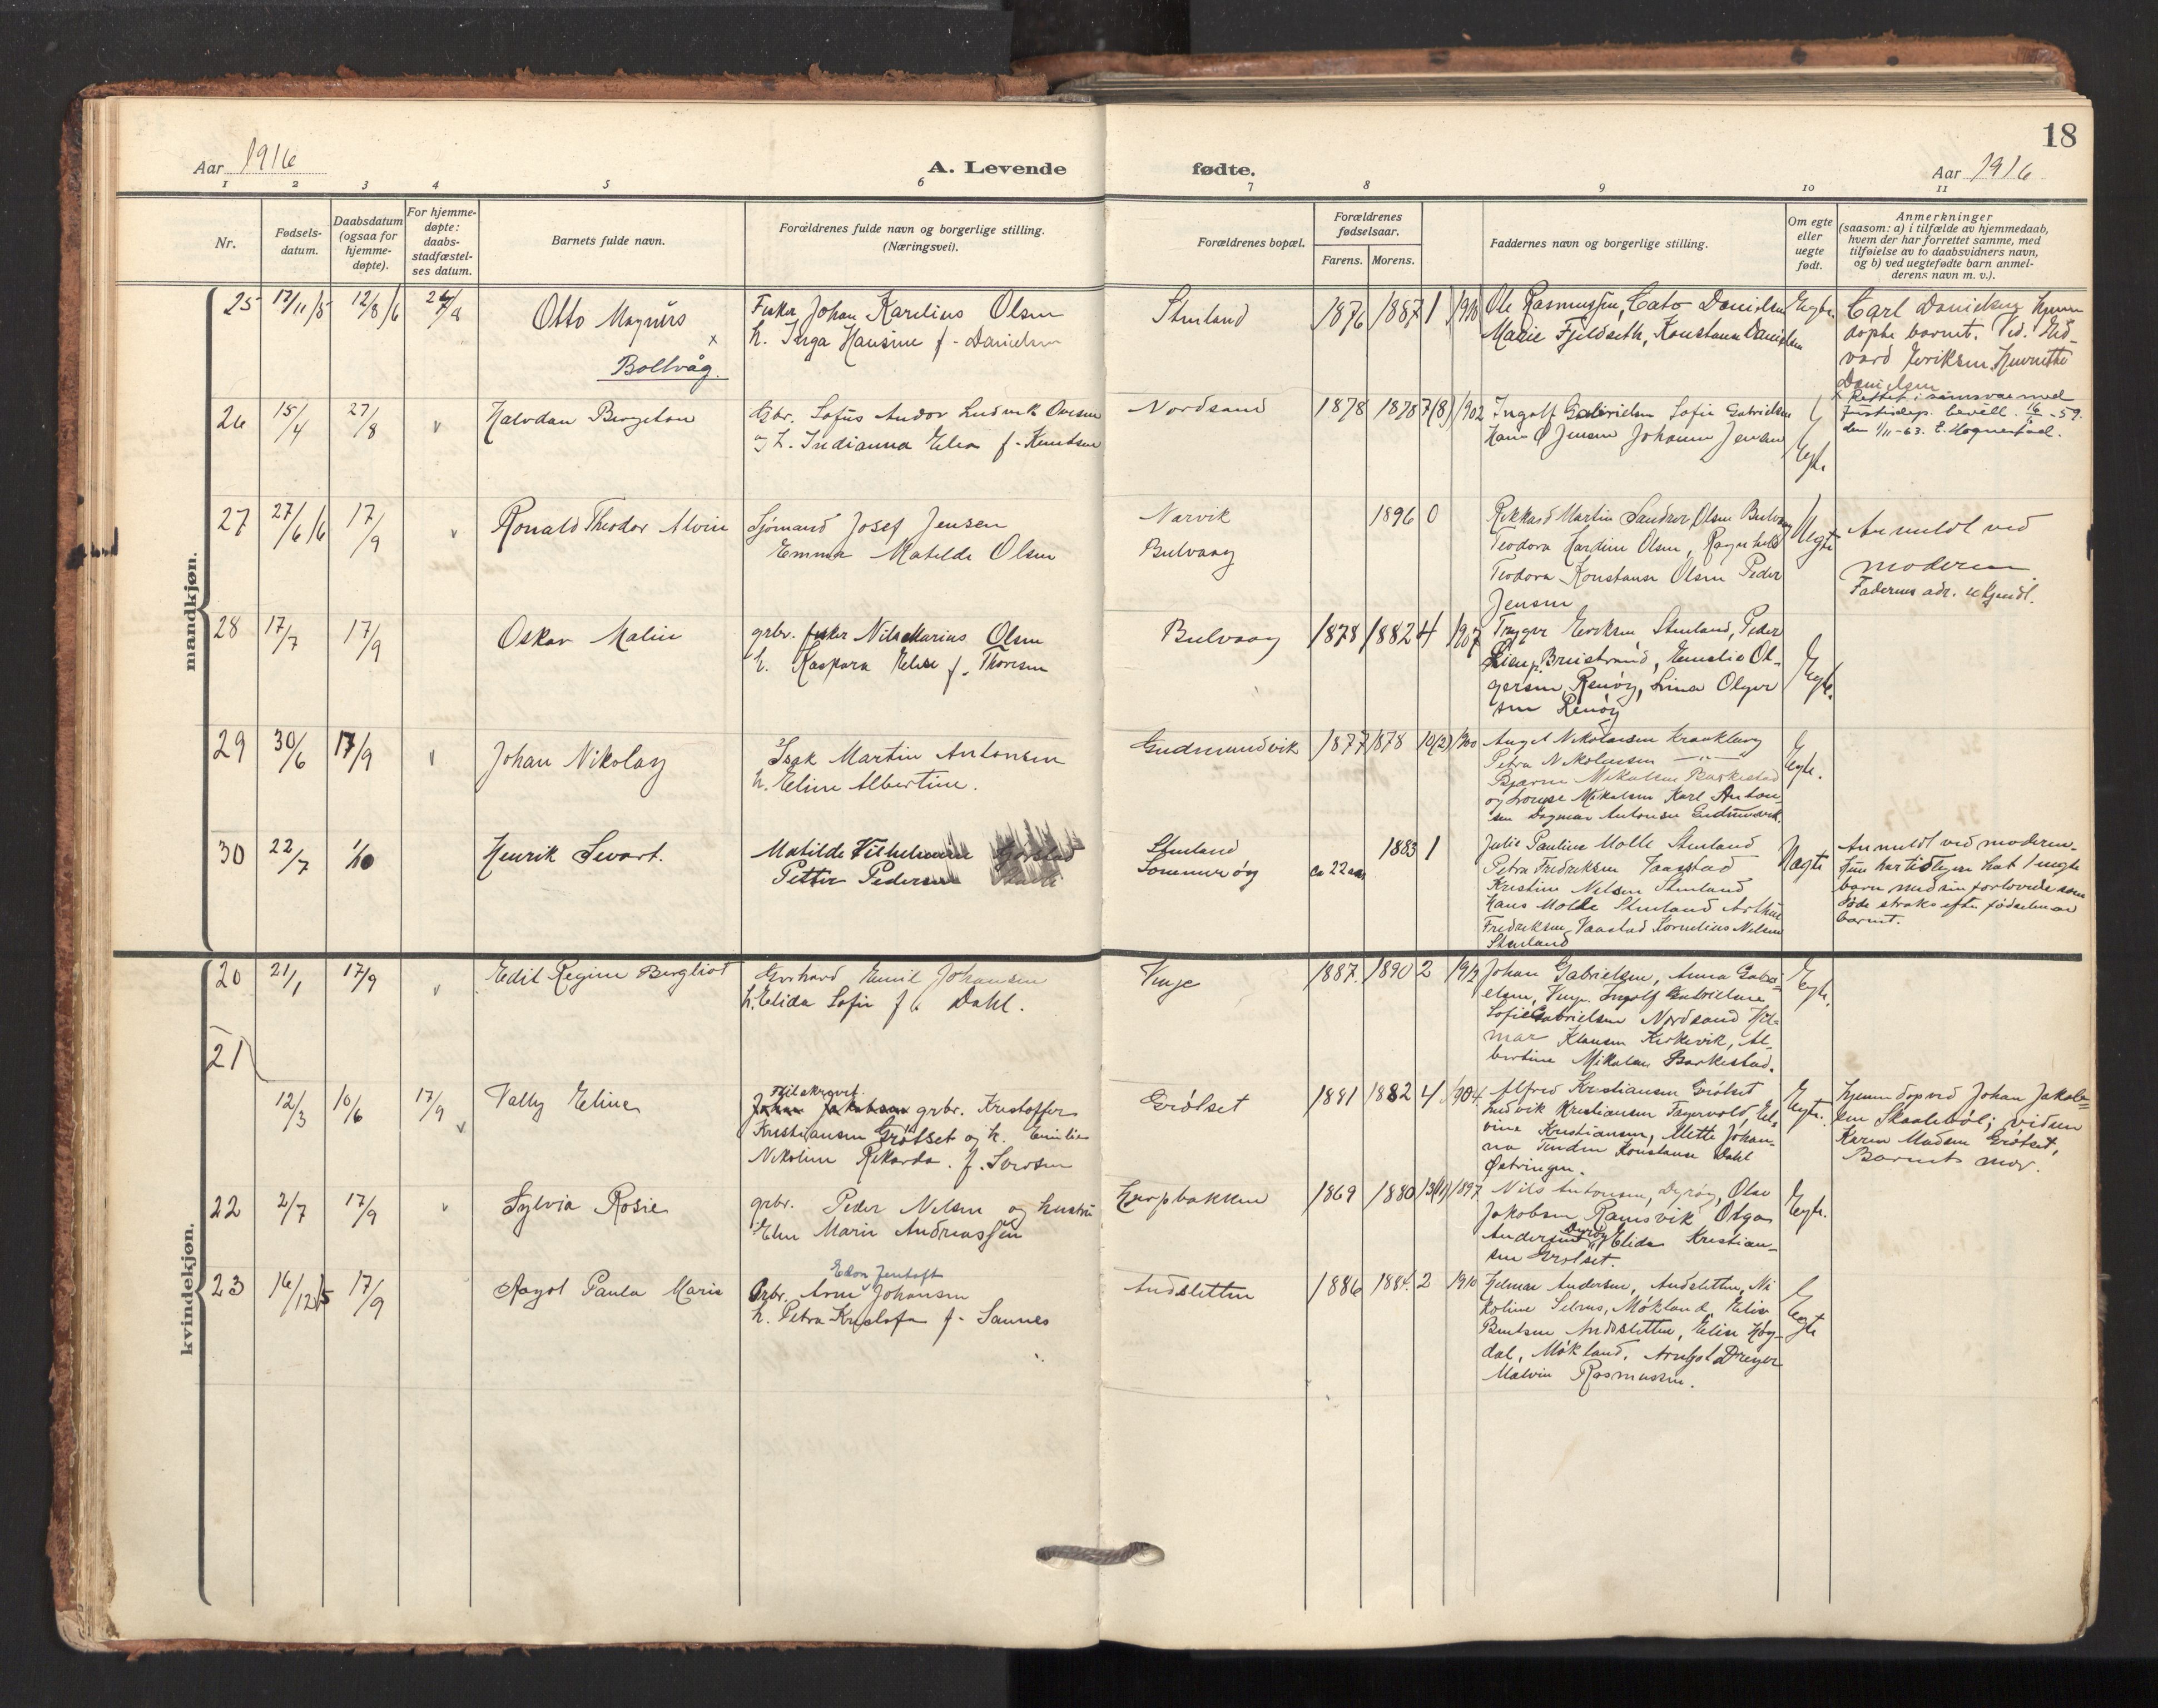 18
Aar 1916
A. Levende
fødte.
Aar 1916
1 2 3 4 5 6 7 8 9 10 11
Nr.
Fødsels-
datum.
Daabsdatum
(ogsaa for
hjemme-
døpte).
For hjemme-
døpte:
daabs-
stadfæstel-
ses datum.
Barnets fulde navn.
Forældrenes fulde navn og borgerlige stilling.
(Næringsvei).
Forældrenes bopæl.
Forældrenes
fødselsaar.
Farens. Morens.
Faddernes navn og borgerlige stilling.
Om egte
eller
uegte
født.
Anmerkninger
(saasom: a) i tilfælde av hjemmedaab,
hvem der har forrettet samme, med
tilføielse av to daabsvidners navn,
og b) ved uegtefødte barn anmel-
derens navn m. v.).
mandkjøn.
25 17/11/5 12/8/6
Otto Magnus x
Bollvåg.
Fisker Johan Karelius Olsen
h. Inga Hansine f. Danielsen
1876 1887 1
Ole Rasmussen, Cato Danielsen
Marie Fjeldseth, Konstanse Danielsen
Egte.
Carl Danielsen hjemme
døpte barnet. Vid. Ed-
vard Eriksen, Henriette
Danielsen
x Rettet i samsvar med
Justisdep. bevill. 16 -59.
den 1/11-63.
26 15/4 27/8 v
Halvdan Bergeton
Gbr. Sofus Andor Ludvik Ovesen
og h. Indianna Elea f. Knutsen
Nordsand
1878 1878 7(8) 1902
Ingolf Gabrielsen Sofie Gabrielsen
Hans Ø Jensen Johanne Jensen
Egte
27 27/6/6 17/9 v
Ronald Theodor Alvin
Sjømand Josef Jensen
Emma Matilde Olsen
Narvik
Bulvaag
1896 0
Rikkard Martin Sandrer Olsen Bulvaag
Teodora Hardine Olsen, Ragnhild
Teodora Konstanse Olsen Peder
Jensen
Uegte
Anmeldt ved
moderen
Faderens adr. ukjendt.
28 17/7 17/9
Oskar Malin
grbr. fisker Nils Marius Olsen
h. Kaspara Elise f. Thoresen
Bulvaag
1878 1882 4 1907
Trygve Eriksen, Peder
Emelie Ol-
gersen, Renøy, Lina Olger
sen Renøy
Egte.
29 30/6 17/9 v
Johan Nikolay
Isak Martin Antonsen
h. Eline Albertine.
Gudmundvik
1877 1878 10(2) 1900
Angel Nikolaisen Kraakberg
Petra Nikolaisen — " —
Bjarne Mikalsen Barkestad
og Lovise Mikalsen Karl Anton-
sen Dagmar Antonsen Gudmundvik.
Egte.
30 22/7 1/10
Henrik Sevart.
Matilde Vilhelmine
Petter Pedersen
Sommerøy
ca 22 aar 1883 1
Julie Pauline Molle
Petra Fredriksen Vaagstad
Kristine Nilsen
Hans Molle Arthur
Fredriksen Vaastad Kornelius Nilsen
Uegte
Anmeldt ved moderen.
Hun har tidligere hat 1 uegte
barn med sin forlovede som
døde straks efter fødselen av
barnet.
kvindekjøn.
20 21/1 17/9 v
Edit Regine Bergliot
Gerhard Emil Johansen
h. Elida Sofie f. Dahl.
Vinje
1887. 1890 2 1912
Johan Gabrielsen, Anna Gabri-
elsen, Vinje. Ingolf Gabrielsen
Sofie Gabrielsen Nordsand Hil-
mar Klausen Kirkevik, Al-
bertine Mikalsen Barkestad.
Egte.
21
12/3 10/6 17/9 v
Vally Eline
Feilskrevet.
Johan Jakobsen grbr. Kristoffer
Kristiansen Grøtset og h. Emilie
Nikoline Rikarda f. Iversen
Grøtset
1881 1882 4 1904
Alfred Kristiansen Grøtset
Ludvik Kristiansen Fagervold, El-
vine Kristiansen, Mette Johan-
na Konstanse Dahl
Østringen.
Egte.
Hjemmedøp ved Johan Jakob-
sen Skaalebøl; vidsen
Karen Madsen Grøtset,
Barnets mor.
22 2/7 17/9 v
Sylvia Rosie
grbr. Peder Nilsen og hustru
Elen Marie Andreassen
Kurpbakken
1869 1880 13(1) 1897
Nils Antonsen, Dyrøy, Olse
Jakobsen Ramsvik Olga
Andersen Dyrøy Elida Kristian-
sen Grøtset.
Egte.
23 16/12/15 17/9
Aagot Paula Marie
Edon Jentoft
Grbr. Arne Johansen
h. Petra Kristofa f. Sannes
Andsletten
1886 1884. 2 1910
Hilmar Andersen, Andsletten, Ni
koline Selnes, Møkland, Elise
Bentsen Andslettin, Elise Høy-
dal, Møkland. Arnljot Dreyer
Malvin Rasmussen.
Egte